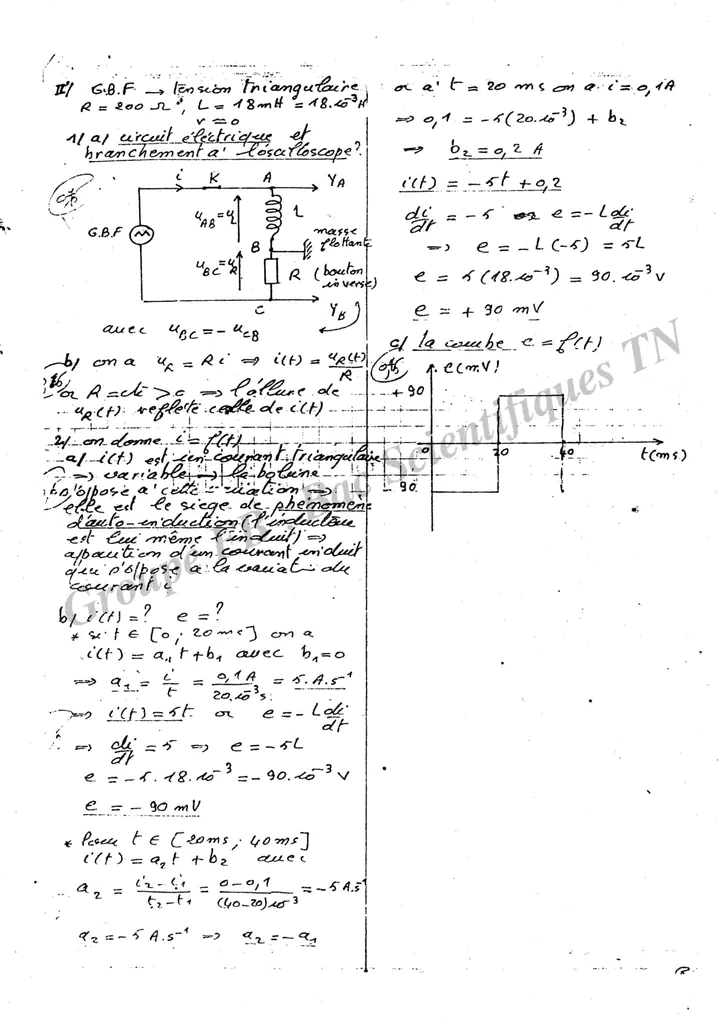 II°/ G.B.F → tension triangulaire
R = 200 Ω, L = 18mH = 18.10⁻³H
r = 0
1/ a/ circuit électrique et
branchement a' l'oscilloscope?
i K A Y_A
u_AB = u_L L
G.B.F
B masse
flottante
u_BC = u_R R (bouton
inverse)
C Y_B
avec u_BC = - u_CB
b/ on a u_R = Ri ⇒ i(t) = u_R(t)/R
or R = cte > 0 ⇒ l'allure de
u_R(t) reflète celle de i(t)
2/ on donne i = f(t)
a/ i(t) est un courant triangulaire
⇒ variable → la bobine
s'oppose a' cette variation ⇒
elle est le siège de phénomène
d'auto-induction (l'inducteur
est lui même l'induit) ⇒
apparition d'un courant induit
qui s'oppose a la variat° du
courant i
b/ i(t) = ? e = ?
* si t ∈ [0 ; 20ms] on a
i(t) = a₁t + b₁ avec b₁ = 0
⇒ a₁ = i/t = 0,1A/20.10⁻³s = 5.A.s⁻¹
⇒ i(t) = 5t or e = - L di/dt
⇒ di/dt = 5 ⇒ e = - 5L
e = - 5. 18. 10⁻³ = - 90. 10⁻³ V
e = - 90 mV
* Pour t ∈ [20ms ; 40ms]
i(t) = a₂t + b₂ avec
a₂ = i₂ - i₁/t₂ - t₁ = 0 - 0,1/(40-20)10⁻³ = - 5 A.s⁻¹
a₂ = - 5 A.s⁻¹ ⇒ a₂ = - a₁
or a' t = 20 ms on a i = 0,1A
⇒ 0,1 = - 5(20.10⁻³) + b₂
⇒ b₂ = 0,2 A
i(t) = - 5t + 0,2
di/dt = - 5 or e = - L di/dt
⇒ e = - L (-5) = 5L
e = 5 (18.10⁻³) = 90.10⁻³ V
e = + 90 mV
c/ la courbe e = f(t)
e(mV)
+ 90
0 20 40 t(ms)
- 90
Groupe FB - Bac Scientifiques TN